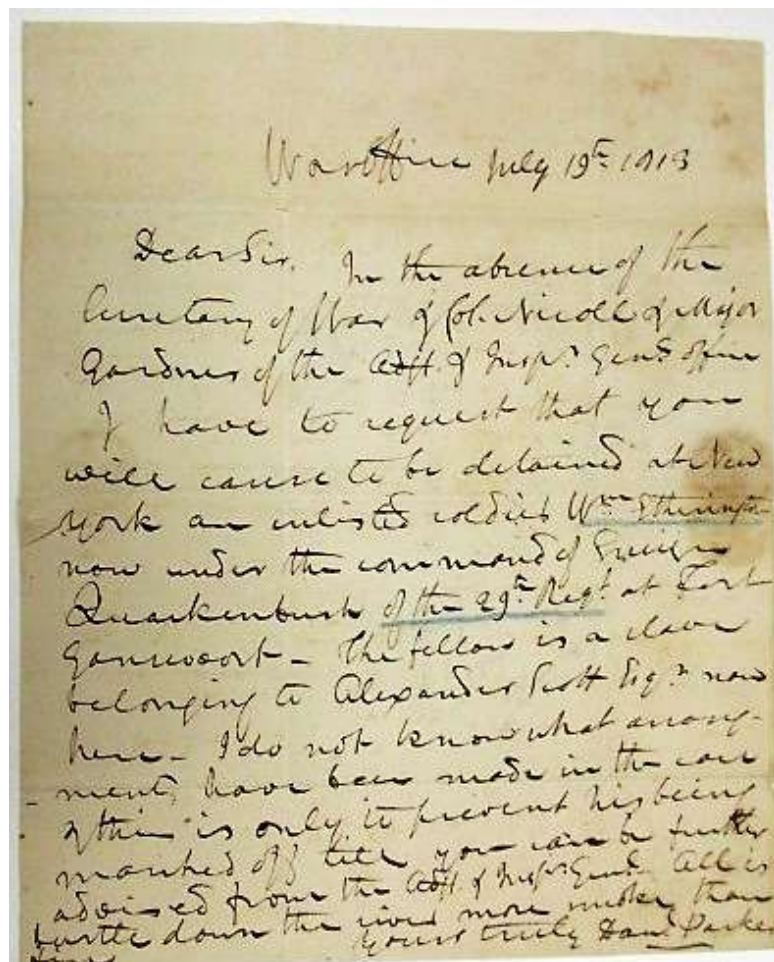 War Office July 19th 1813
Dear Sir. In the absence of the
Secretary of War & Col. Nicoll & Major
Gardner of the Adjt. & Inspr. Genl. office
I have to request that you
will cause to be detained at New
York an enlisted soldier Wm. Etherington
now under the command of Ensign
Quackenbush of the 29th Regt. at Fort
Gansevoort - The fellow is a slave
belonging to Alexander Scott Esqr. now
here - I do not know what arrange-
ments have been made in the case
& this is only to prevent his being
marched off till you can be further
advised from the Adjt. & Inspr. Genl. All is
bustle down the river more smoke than
Yours truly Danl. Parker